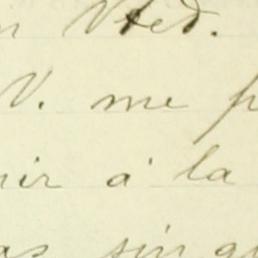 n Vted.
V. me p
nir á la
as sin g